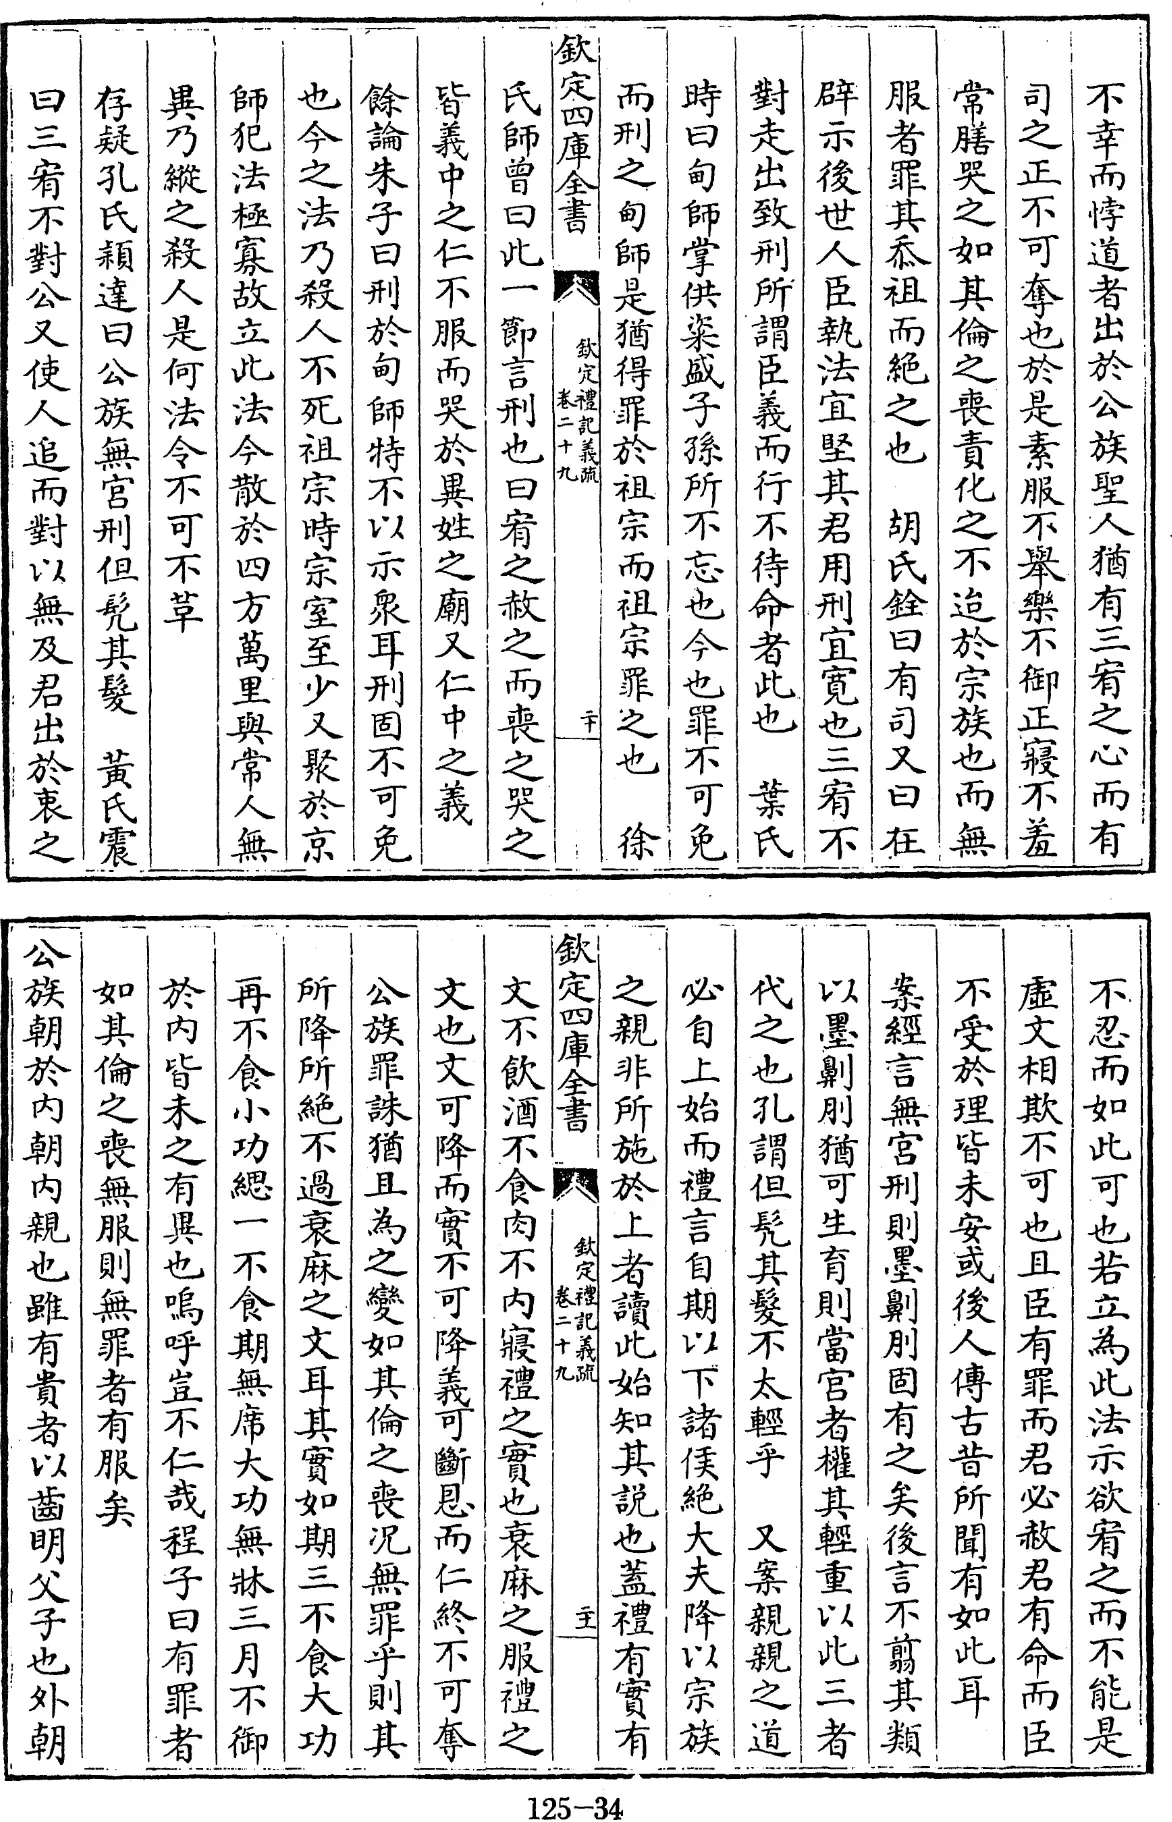 不幸而悖道者出於公族聖人猶有三宥之心而有
司之正不可奪也於是素服不舉樂不御正寢不羞
常膳哭之如其倫之喪責化之不迨於宗族也而無
服者罪其忝祖而絶之也　胡氏銓曰有司又曰在
辟示後世人臣執法宜堅其君用刑宜寛也三宥不
對走出致刑所謂臣義而行不待命者此也　葉氏
時曰甸師掌供粢盛子孫所不忘也今也罪不可免
而刑之甸師是猶得罪於祖宗而祖宗罪之也　徐
欽定四庫全書
欽定禮記義疏
卷二十九
二十
氏師曾曰此一節言刑也曰宥之赦之而喪之哭之
皆義中之仁不服而哭於異姓之廟又仁中之義
餘論朱子曰刑於甸師特不以示衆耳刑固不可免
也今之法乃殺人不死祖宗時宗室至少又聚於京
師犯法極寡故立此法今散於四方萬里與常人無
異乃縱之殺人是何法令不可不草
存疑孔氏穎達曰公族無宮刑但髠其髮　黃氏震
曰三宥不對公又使人追而對以無及君出於衷之
不忍而如此可也若立為此法示欲宥之而不能是
虛文相欺不可也且臣有罪而君必赦君有命而臣
不受於理皆未安或後人傳古昔所聞有如此耳
案經言無宮刑則墨劓刖固有之矣後言不翦其類
以墨劓刖猶可生育則當宮者權其輕重以此三者
代之也孔謂但髠其髮不太輕乎　又案親親之道
必自上始而禮言自期以下諸侯絶大夫降以宗族
之親非所施於上者讀此始知其説也蓋禮有實有
欽定四庫全書
欽定禮記義疏
卷二十九
二十一
文不飲酒不食肉不内寢禮之實也衰麻之服禮之
文也文可降而實不可降義可斷恩而仁終不可奪
公族罪誅猶且為之變如其倫之喪況無罪乎則其
所降所絶不過衰麻之文耳其實如期三不食大功
再不食小功緦一不食期無席大功無牀三月不御
於内皆未之有異也嗚呼豈不仁哉程子曰有罪者
如其倫之喪無服則無罪者有服矣
公族朝於内朝内親也雖有貴者以齒明父子也外朝
125-34